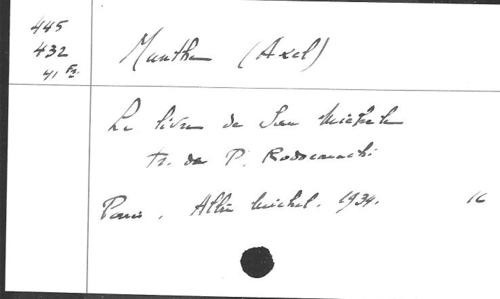 445
432
41 Fr.
Munthe (Axel)
Le livre de San Michele
Tr. de P. Rodocanachi
Paris, Albin Michel. 1934. 16